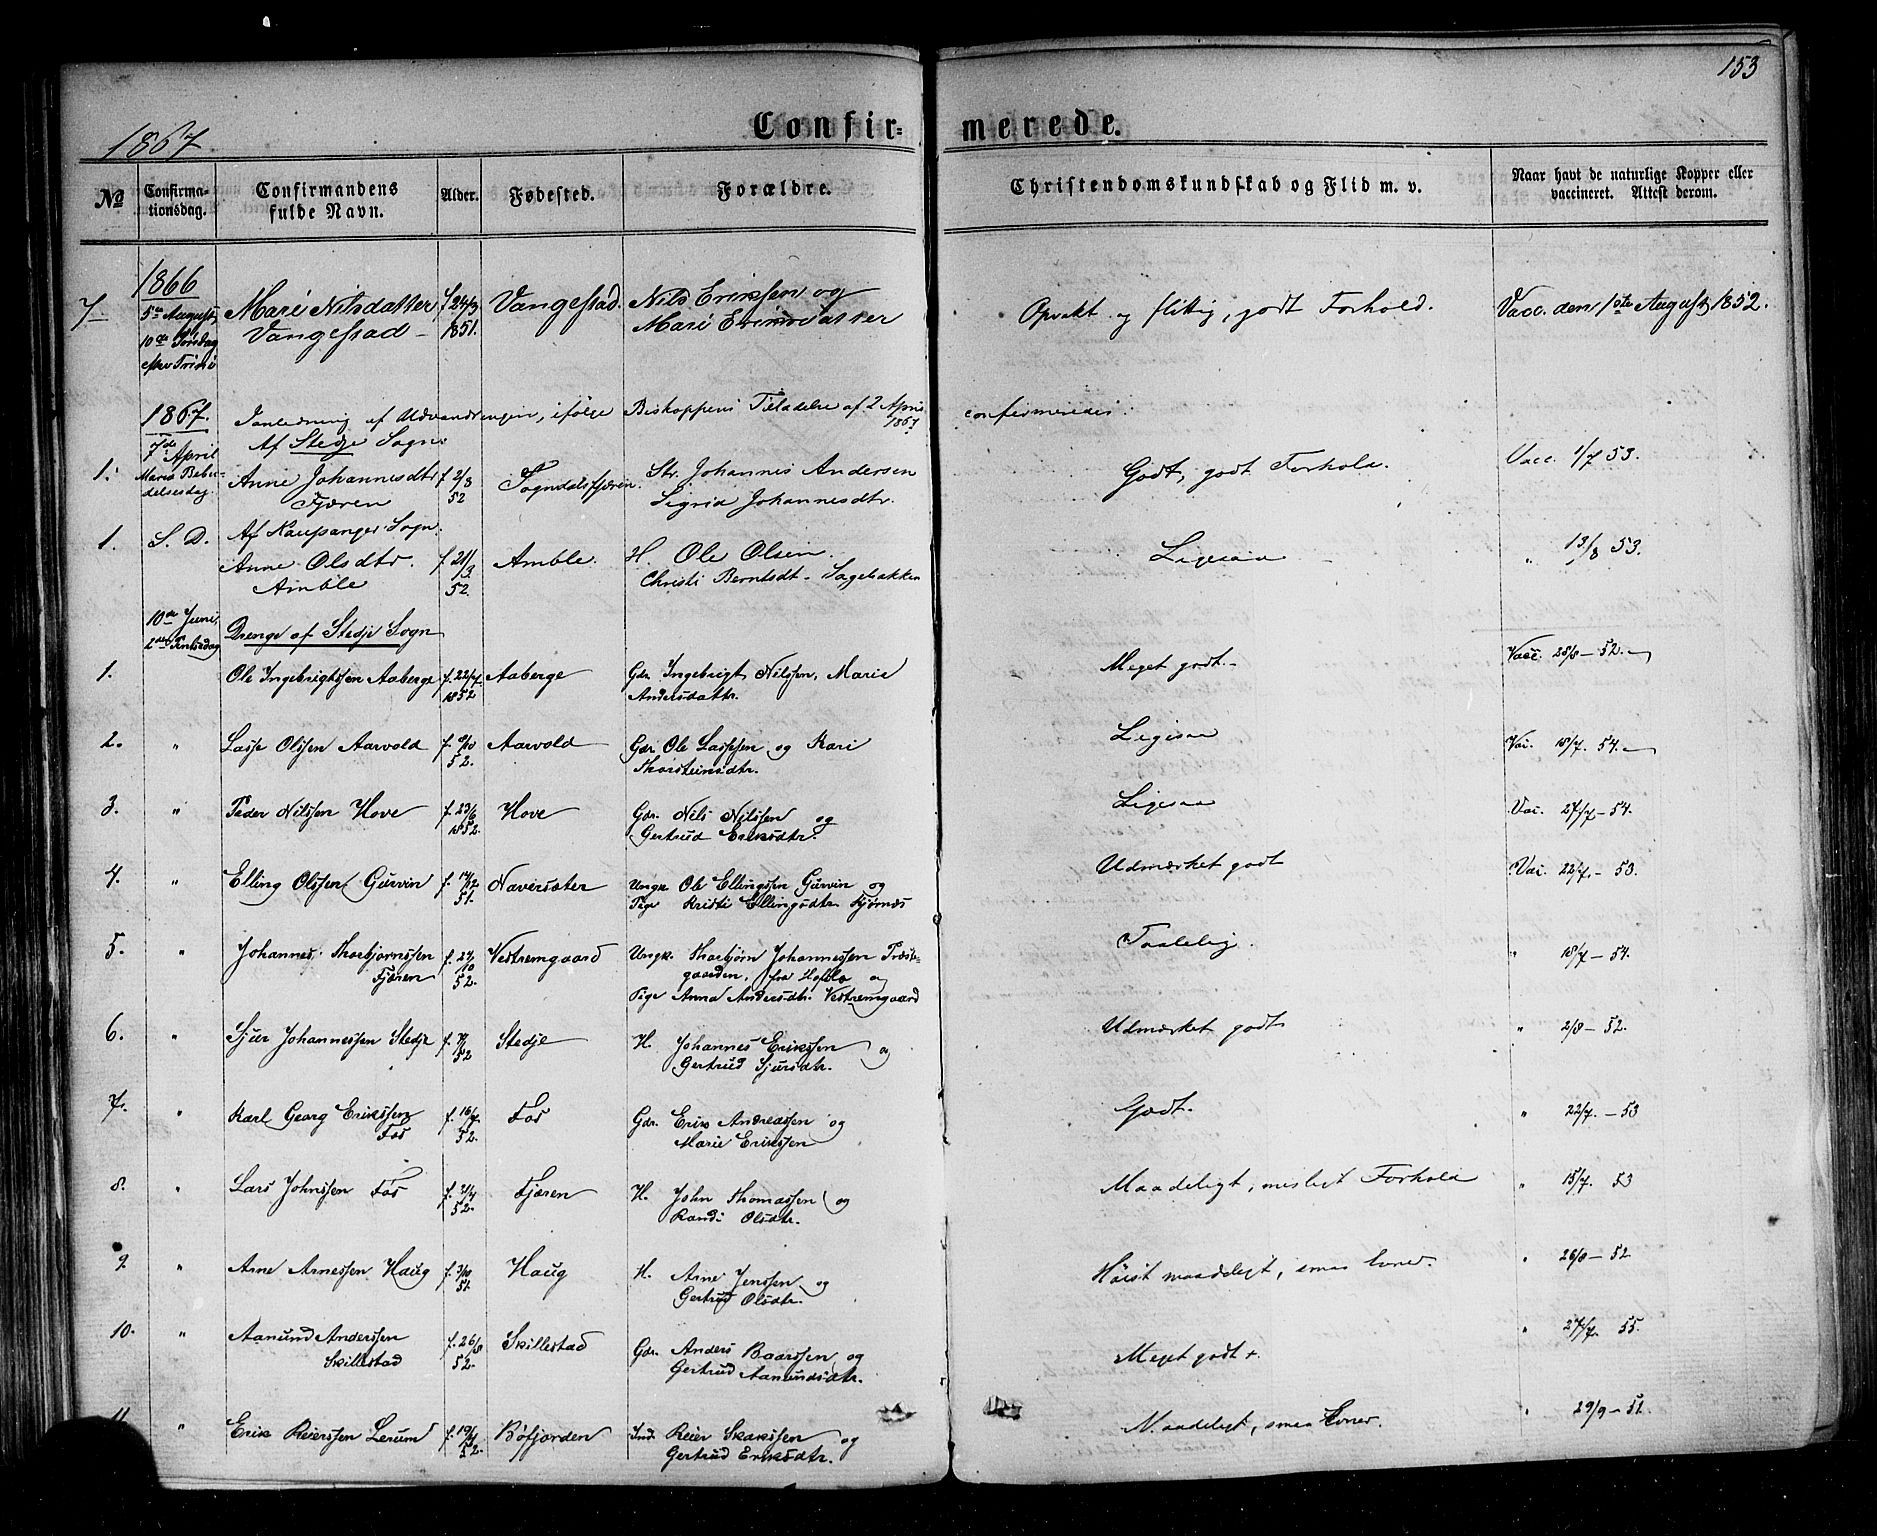 153
1867.
Confirmerede.
No
Confirmationsdag.
Confirmandens fulde Navn.
Alder.
Fødested.
Forældre.
Christendomskundskab og Flid m. v.
Naar havt de naturlige Kopper eller vaccineret. Attest derom.
7 1866 5te August, 10de Søndag efter Trinit. Mari Nilsdatter Vangestad f 24/3 1851. Vangestad. Nils Erikssen og Mari Eriksdatter Opvakt og flittig, godt Forhold. Vacc. den 1ste August 1852.
1867. I anledning af Udvandringen, ifølge Biskoppens Tilladelse af 2 April 1867 confirmeredes:
7de April Maria Bebudelsesdag. Af Stedje Sogn:
1. Anne Johannesdtr Fjæren f 2/3 52 Sogndalsfjæren. Str. Johannes Andersen Sigrid Johannesdtr. Godt, godt Forhold. Vacc. 1/7 53.
Af Kaupanger Sogn:
1. S. D. Anne Olsdtr. Amble f 21/3 52. Amble. H. Ole Olsen. Christi Berntsdt. Sagebakken Ligesaa " 13/8 53.
10de Juni, 2den Pintsedag Drenge af Stedje Sogn
1. Ole Ingebrigtssen Aaberge f. 22/7. 1852 Aaberge Gdr. Ingebrigt Nilssen, Marie Andersdattr. Meget godt. Vacc. 28/8 - 52.
2. " Lasse Olssen Aarvold f. 9/10 52. Aarvold Gdr. Ole Lassesen og Kari Thorsteinsdtr. Ligesaa Vac. 18/7. 54.
3. " Peder Nilssen Hove f. 23/6 1852. Hove Gdr. Nils Nilssen og Gertrud Eriksdtr. Ligesaa Vac. 27/7 - 54.
4. " Elling Olssen Gurvin f. 14/12 51. Naversæter Ungk. Ole Ellingssen Gurvin og Pige Kristi Ellingsdtr. Fjørnæs Udmærket godt Vac. 22/7. - 53.
5. " Johannes Thorbjørnssen Fjæren f. 24/10 52. Vestremgaard Ungk. Thorbjørn Johannessen Prestegaarden, fra Hafslo og Pige Anna Andersdtr. Vestremgaard Taalelig. " 18/7 - 54.
6. " Sjur Johannessen Stedje f. 52 Stedje H. Johannes Erikssen og Gertrud Sjursdtr. Udmærket godt " 2/8 - 52.
7. " Karl Georg Erikssen Fos f. 16/7 52. Fos Gdr. Erik Andreassen og Marie Erikssen Godt. " 22/7. - 53
8. " Lars Johnssen Fos f. 2/4 52. Fjæren H. John Thomassen og Randi Olsdtr. Maadeligt, misligt Forhold " 15/7. 53
9. " Arne Arnessen Haug f. 3/10 51. Haug H. Arne Jenssen og Gertrud Olsdtr. Høist maadeligt, smaa Evner. " 26/8 - 52
10. " Aamund Anderssen Skillestad f. 26/8 52. Skillestad Gdr. Anders Baarssen og Gertrud Aamundsdtr. Meget godt +. " 27/7. 55.
11 " Erik Reierssen Lerum f. 19/4 52. Bøfjorden Ind. Reier Skakssen og Gertrud Eriksdtr. Maadeligt, smaa Evner. " 29/9 - 52.